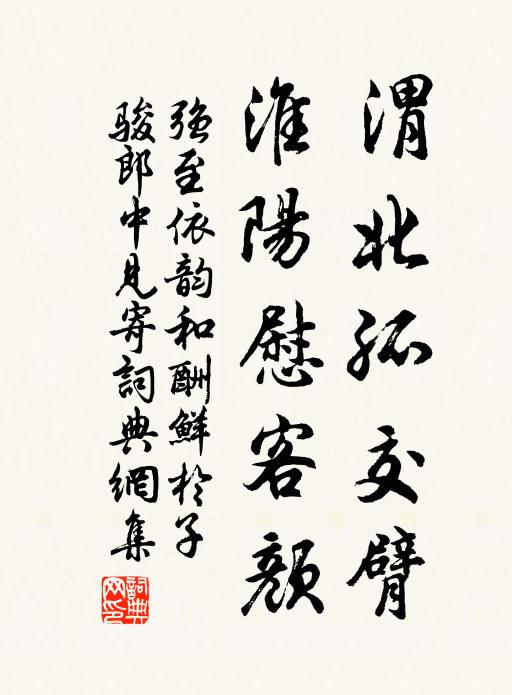 渭北孤交臂
淮陽慰客顏
強至依韵和酬鮮於子
駿郎中見寄詞典網集
詞典網印